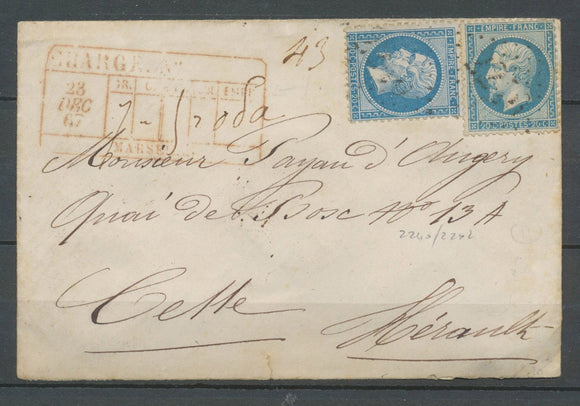 CHARGEMENT
23
DEC
67
GR.
MARSEILLE
43
EMPIRE FRANC
20 C POSTES 20 C
EMPIRE FRANC
20 C POSTES 20 C
Monsieur Payan d'Augery
Quai de Bosc No 13 A
2240/2242
Cette
Hérault